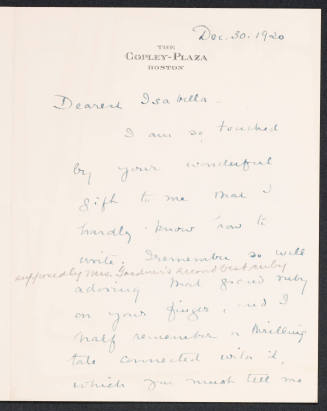 Dec. 30. 1920
THE
COPLEY-PLAZA
BOSTON
Dearest Isabella -
I am so touched
by your wonderful
gift to me that I
hardly know how to
write. I remember so well
supposedly Mrs. Gardner's second best ruby
adoring that grand ruby
on your finger, and I
half remember a thrilling
tale connected with it,
which you must tell me